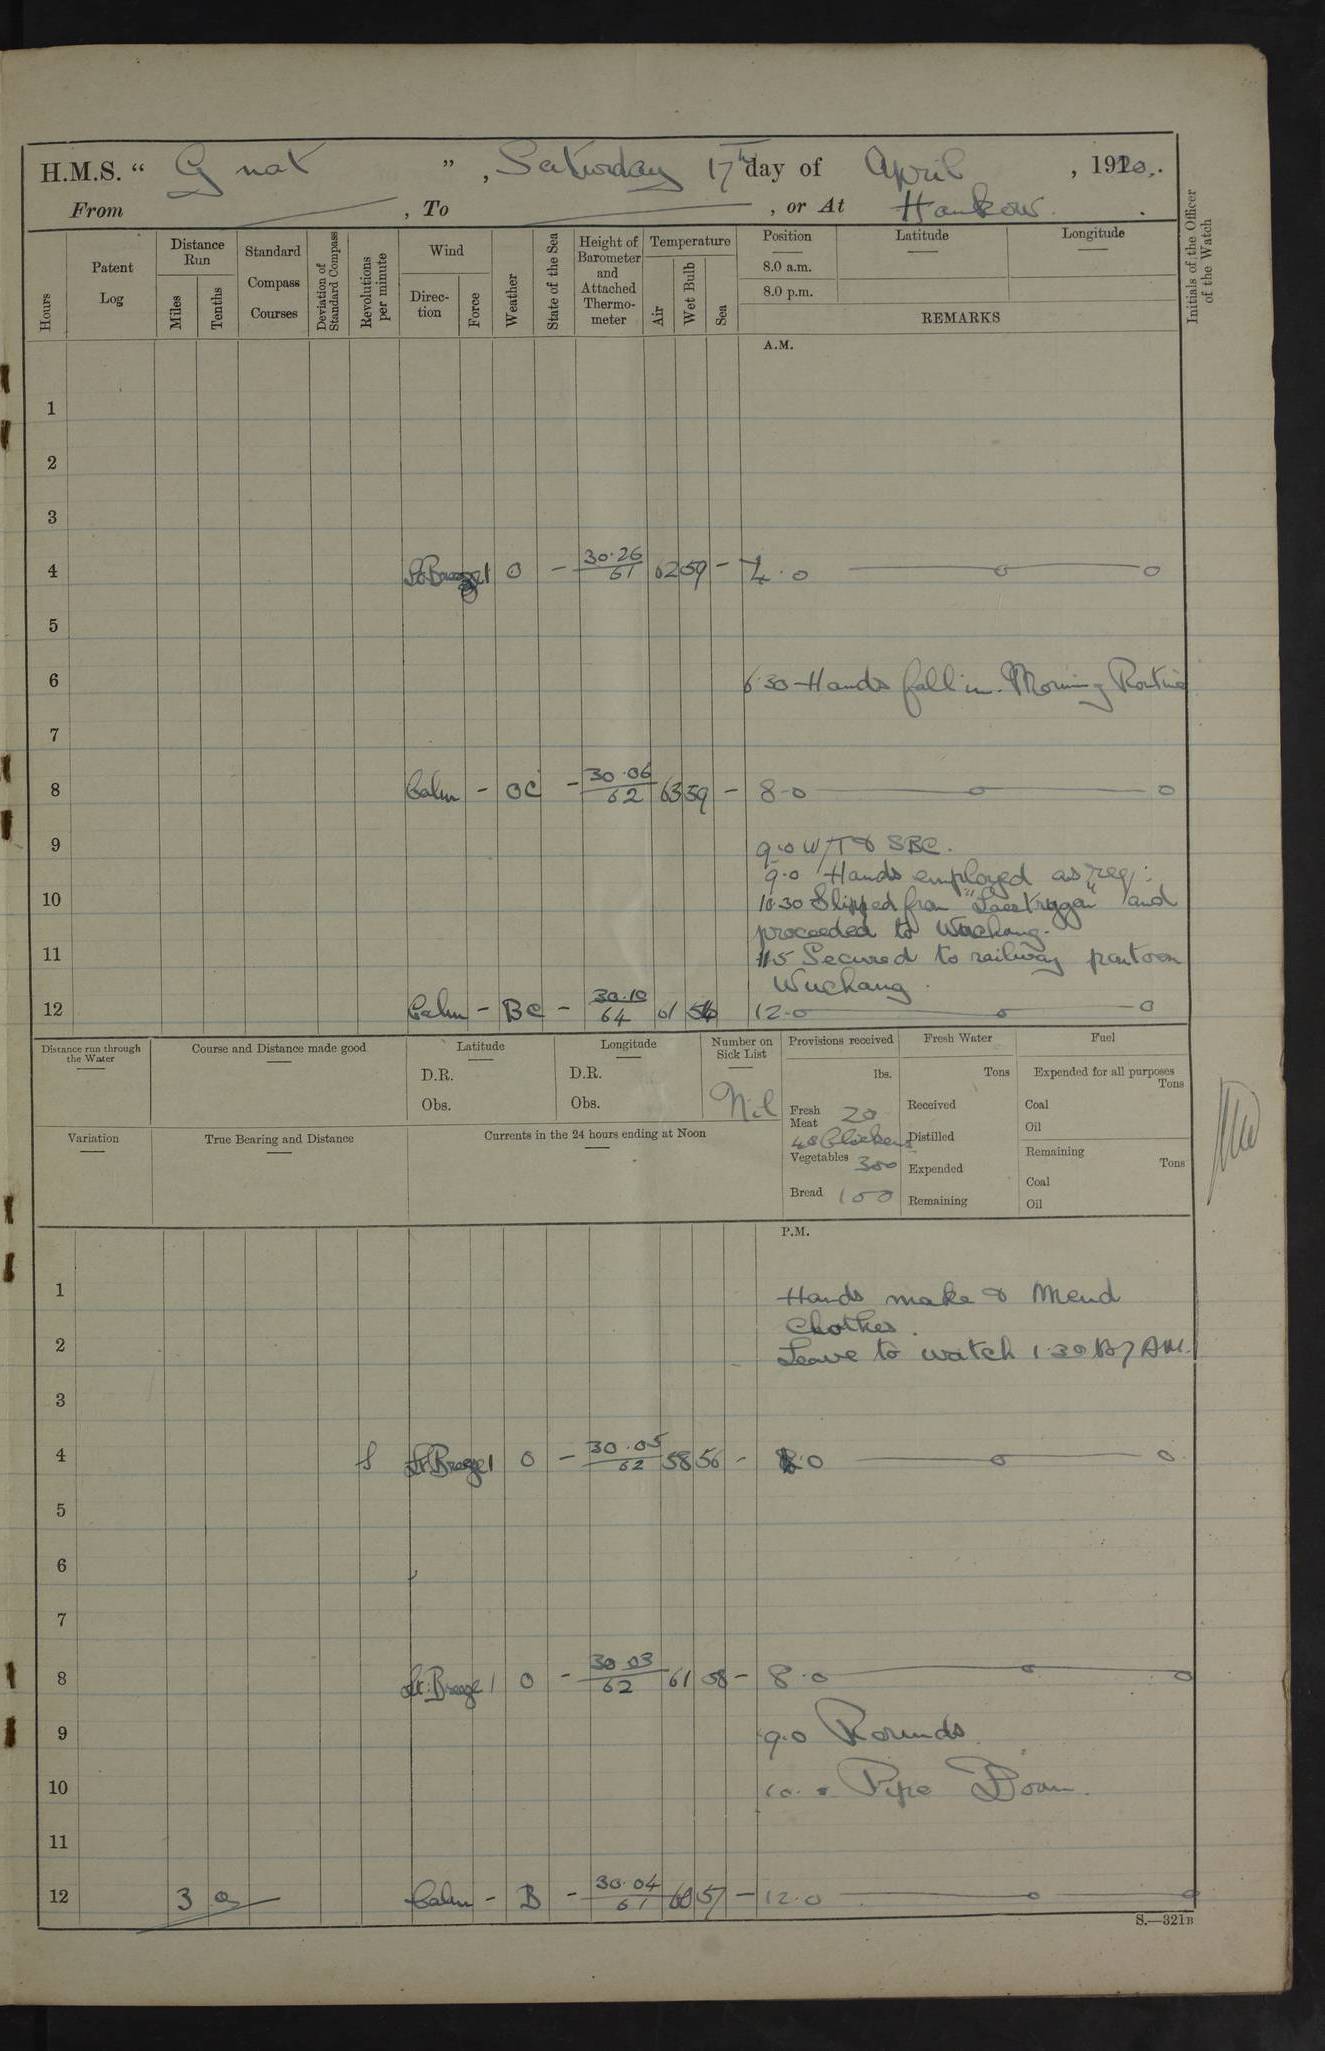 H.M.S. “ Gnat ” , Saturday 17th day of April , 1920.
From , To , or At Hankow.
Hours
Patent Log
Distance Run
Miles
Tenths
Standard Compass Courses
Deviation of Standard Compass
Revolutions per minute
Wind
Direc-tion
Force
Weather
State of the Sea
Height of Barometer and Attached Thermo-meter
Temperature
Air
Wet Bulb
Sea
Position
8.0 a.m.
8.0 p.m.
Latitude
Longitude
REMARKS
Initials of the Officer of the Watch
A.M.
1
2
3
4 Lt Breeze 1 O - 30.26 61 62 59 - 4.0
5
6 6.30 Hands fall in. Morning Routine
7
8 Calm - OC - 30.06 62 63 59 - 8.0
9 9.0 W/T & SBC.
9.0 Hands employed as req:
10 10.30 Slipped from "Laestrygon" and
proceeded to Wuchang.
11 11.5 Secured to railway pontoon
Wuchang.
12 Calm - BC - 30.10 64 61 56 12.0
Distance run through the Water
Course and Distance made good
Latitude
D.R.
Obs.
Longitude
D.R.
Obs.
Number on Sick List
Nil
Provisions received
lbs.
Fresh Meat 20
48 Chickens
Vegetables 300
Bread 100
Fresh Water
Tons
Received
Distilled
Expended
Remaining
Fuel
Expended for all purposes
Tons
Coal
Oil
Remaining
Tons
Coal
Oil
Variation
True Bearing and Distance
Currents in the 24 hours ending at Noon
P.M.
1 Hands make & Mend
Clothes.
2 Leave to watch 1.30 to 7 AM.
3
4 Lt Breeze 1 O - 30.05 62 58 56 - .0
5
6
7
8 Lt. Breeze 1 O - 30.03 62 61 58 - 8.0
9 9.0 Rounds.
10 10.0 Pipe Down.
11
12 3 0 Calm - B - 30.04 61 60 57 - 12.0
S.—321B